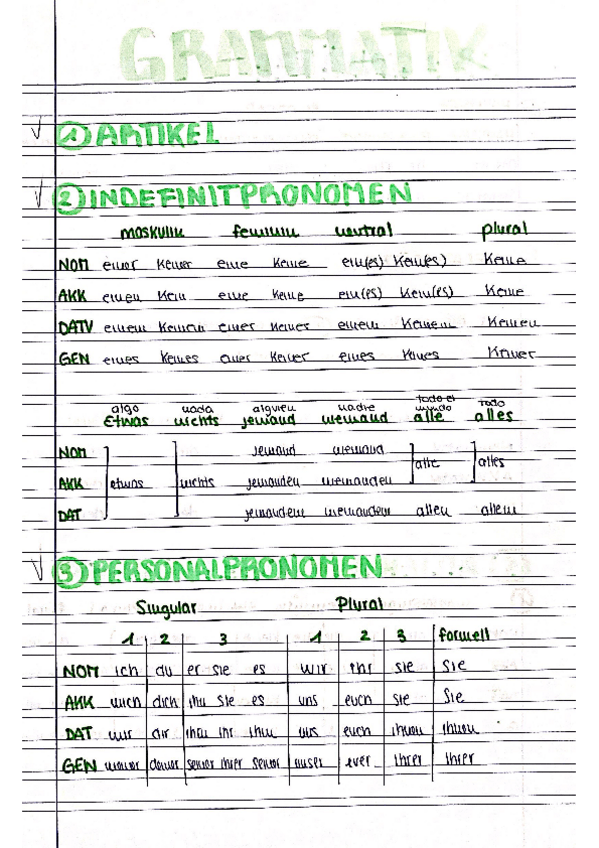 GRAMMATIK
1 ARTIKEL
2 INDEFINITPRONOMEN
maskulin feminin neutral plural
NOM einer keiner eine keine ein(es) kein(es) keine
AKK einen kein eine keine ein(es) kein(es) keine
DATV einem keinem einer keiner einem keinem keinen
GEN eines keines einer keiner eines keines keiner
algo nada alguien nadie todo el mundo todo
etwas nichts jemand niemand alle alles
NOM jemand niemand
etwas nichts alle alles
AKK jemanden niemanden
DAT jemandem niemandem allen allem
3 PERSONALPRONOMEN
Singular Plural
1 2 3 1 2 3 formell
NOM ich du er sie es wir ihr sie Sie
AKK mich dich ihn sie es uns euch sie Sie
DAT mir dir ihm ihr ihm uns euch ihnen ihnen
GEN meiner deiner seiner ihrer seiner unser euer ihrer ihrer